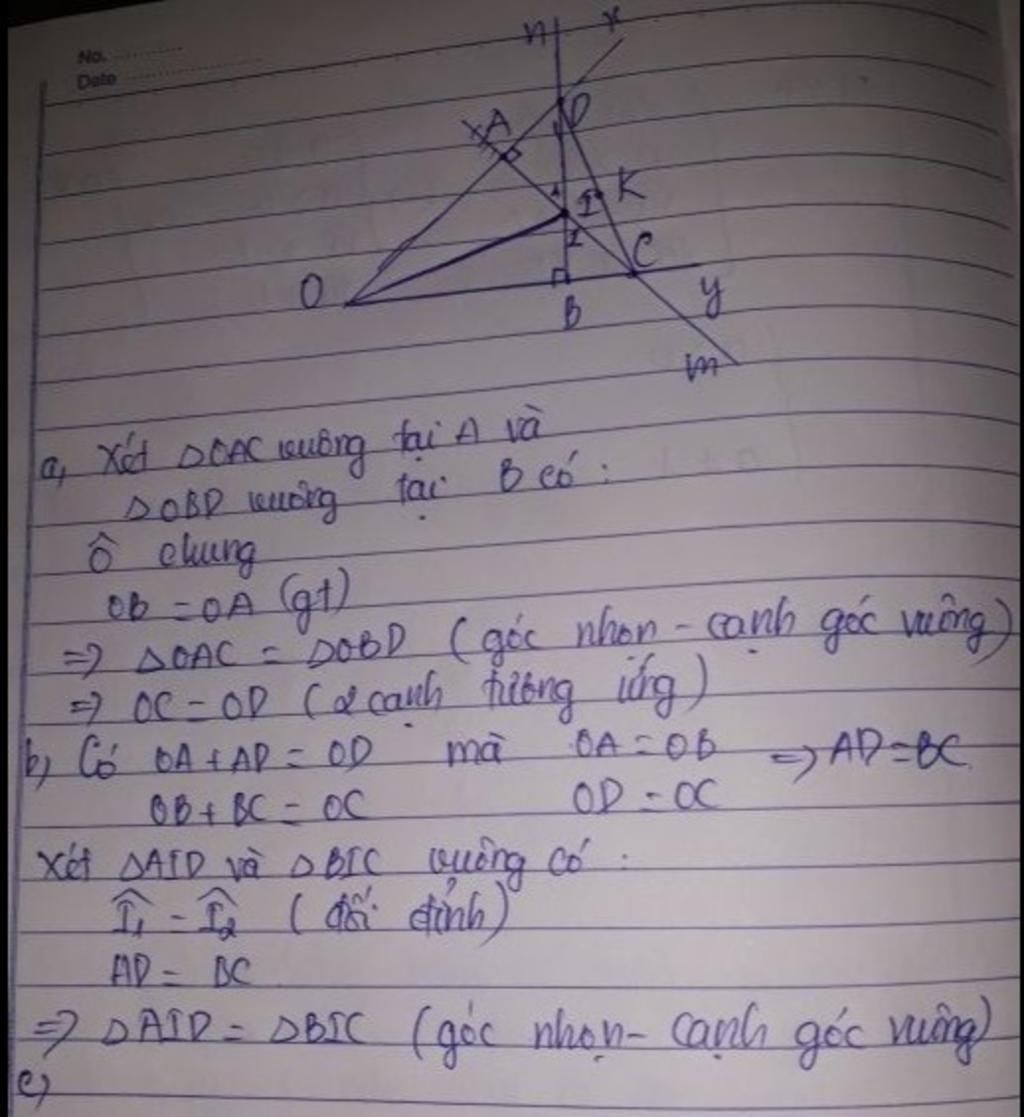 No.
Date
n x
A D
I K
O C
B y
m
a, Xét ΔOAC vuông tại A và
ΔOBD vuông tại B có:
Ô chung
OB = OA (gt)
=> ΔOAC = ΔOBD (góc nhọn - cạnh góc vuông)
=> OC = OD (2 cạnh tương ứng)
b, Có OA + AD = OD mà OA = OB => AD = BC
OB + BC = OC OD = OC
Xét ΔAID và ΔBIC vuông có:
Î₁ = Î₂ (đối đỉnh)
AD = BC
=> ΔAID = ΔBIC (góc nhọn - cạnh góc vuông)
c,